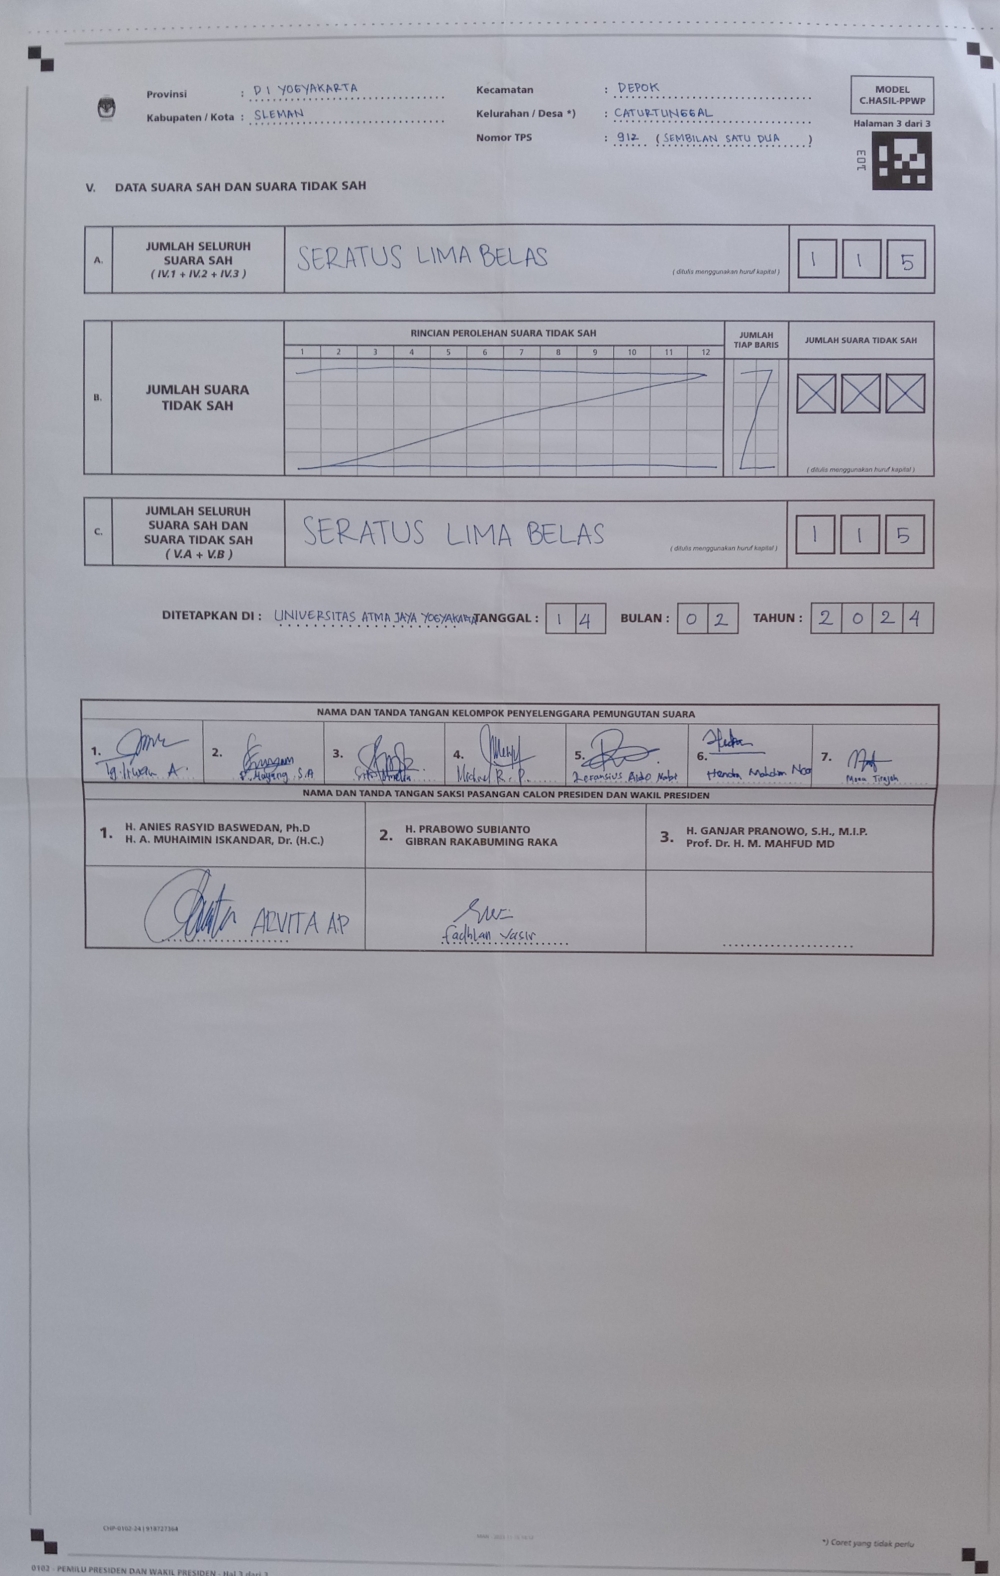 Provinsi : D I YOGYAKARTA
Kabupaten / Kota : SLEMAN
Kecamatan : DEPOK
Kelurahan / Desa *) : CATURTUNGGAL
Nomor TPS : 912 ( SEMBILAN SATU DUA )
MODEL
C.HASIL-PPWP
Halaman 3 dari 3
V. DATA SUARA SAH DAN SUARA TIDAK SAH
A. JUMLAH SELURUH
SUARA SAH
( IV.1 + IV.2 + IV.3 )
SERATUS LIMA BELAS
( ditulis menggunakan huruf kapital )
1 1 5
B. JUMLAH SUARA
TIDAK SAH
RINCIAN PEROLEHAN SUARA TIDAK SAH
1 2 3 4 5 6 7 8 9 10 11 12
JUMLAH
TIAP BARIS
JUMLAH SUARA TIDAK SAH
X X X
( ditulis menggunakan huruf kapital )
C. JUMLAH SELURUH
SUARA SAH DAN
SUARA TIDAK SAH
( V.A + V.B )
SERATUS LIMA BELAS
( ditulis menggunakan huruf kapital )
1 1 5
DITETAPKAN DI : UNIVERSITAS ATMA JAYA YOGYAKARTA TANGGAL : 1 4 BULAN : 0 2 TAHUN : 2 0 2 4
NAMA DAN TANDA TANGAN KELOMPOK PENYELENGGARA PEMUNGUTAN SUARA
1. 2. 3. 4. 5. 6. 7.
NAMA DAN TANDA TANGAN SAKSI PASANGAN CALON PRESIDEN DAN WAKIL PRESIDEN
1. H. ANIES RASYID BASWEDAN, Ph.D
H. A. MUHAIMIN ISKANDAR, Dr. (H.C.)
2. H. PRABOWO SUBIANTO
GIBRAN RAKABUMING RAKA
3. H. GANJAR PRANOWO, S.H., M.I.P.
Prof. Dr. H. M. MAHFUD MD
ARVITA AP
Fadhlan Yasir
*) Coret yang tidak perlu
0102 - PEMILU PRESIDEN DAN WAKIL PRESIDEN - Hal 3 dari 3